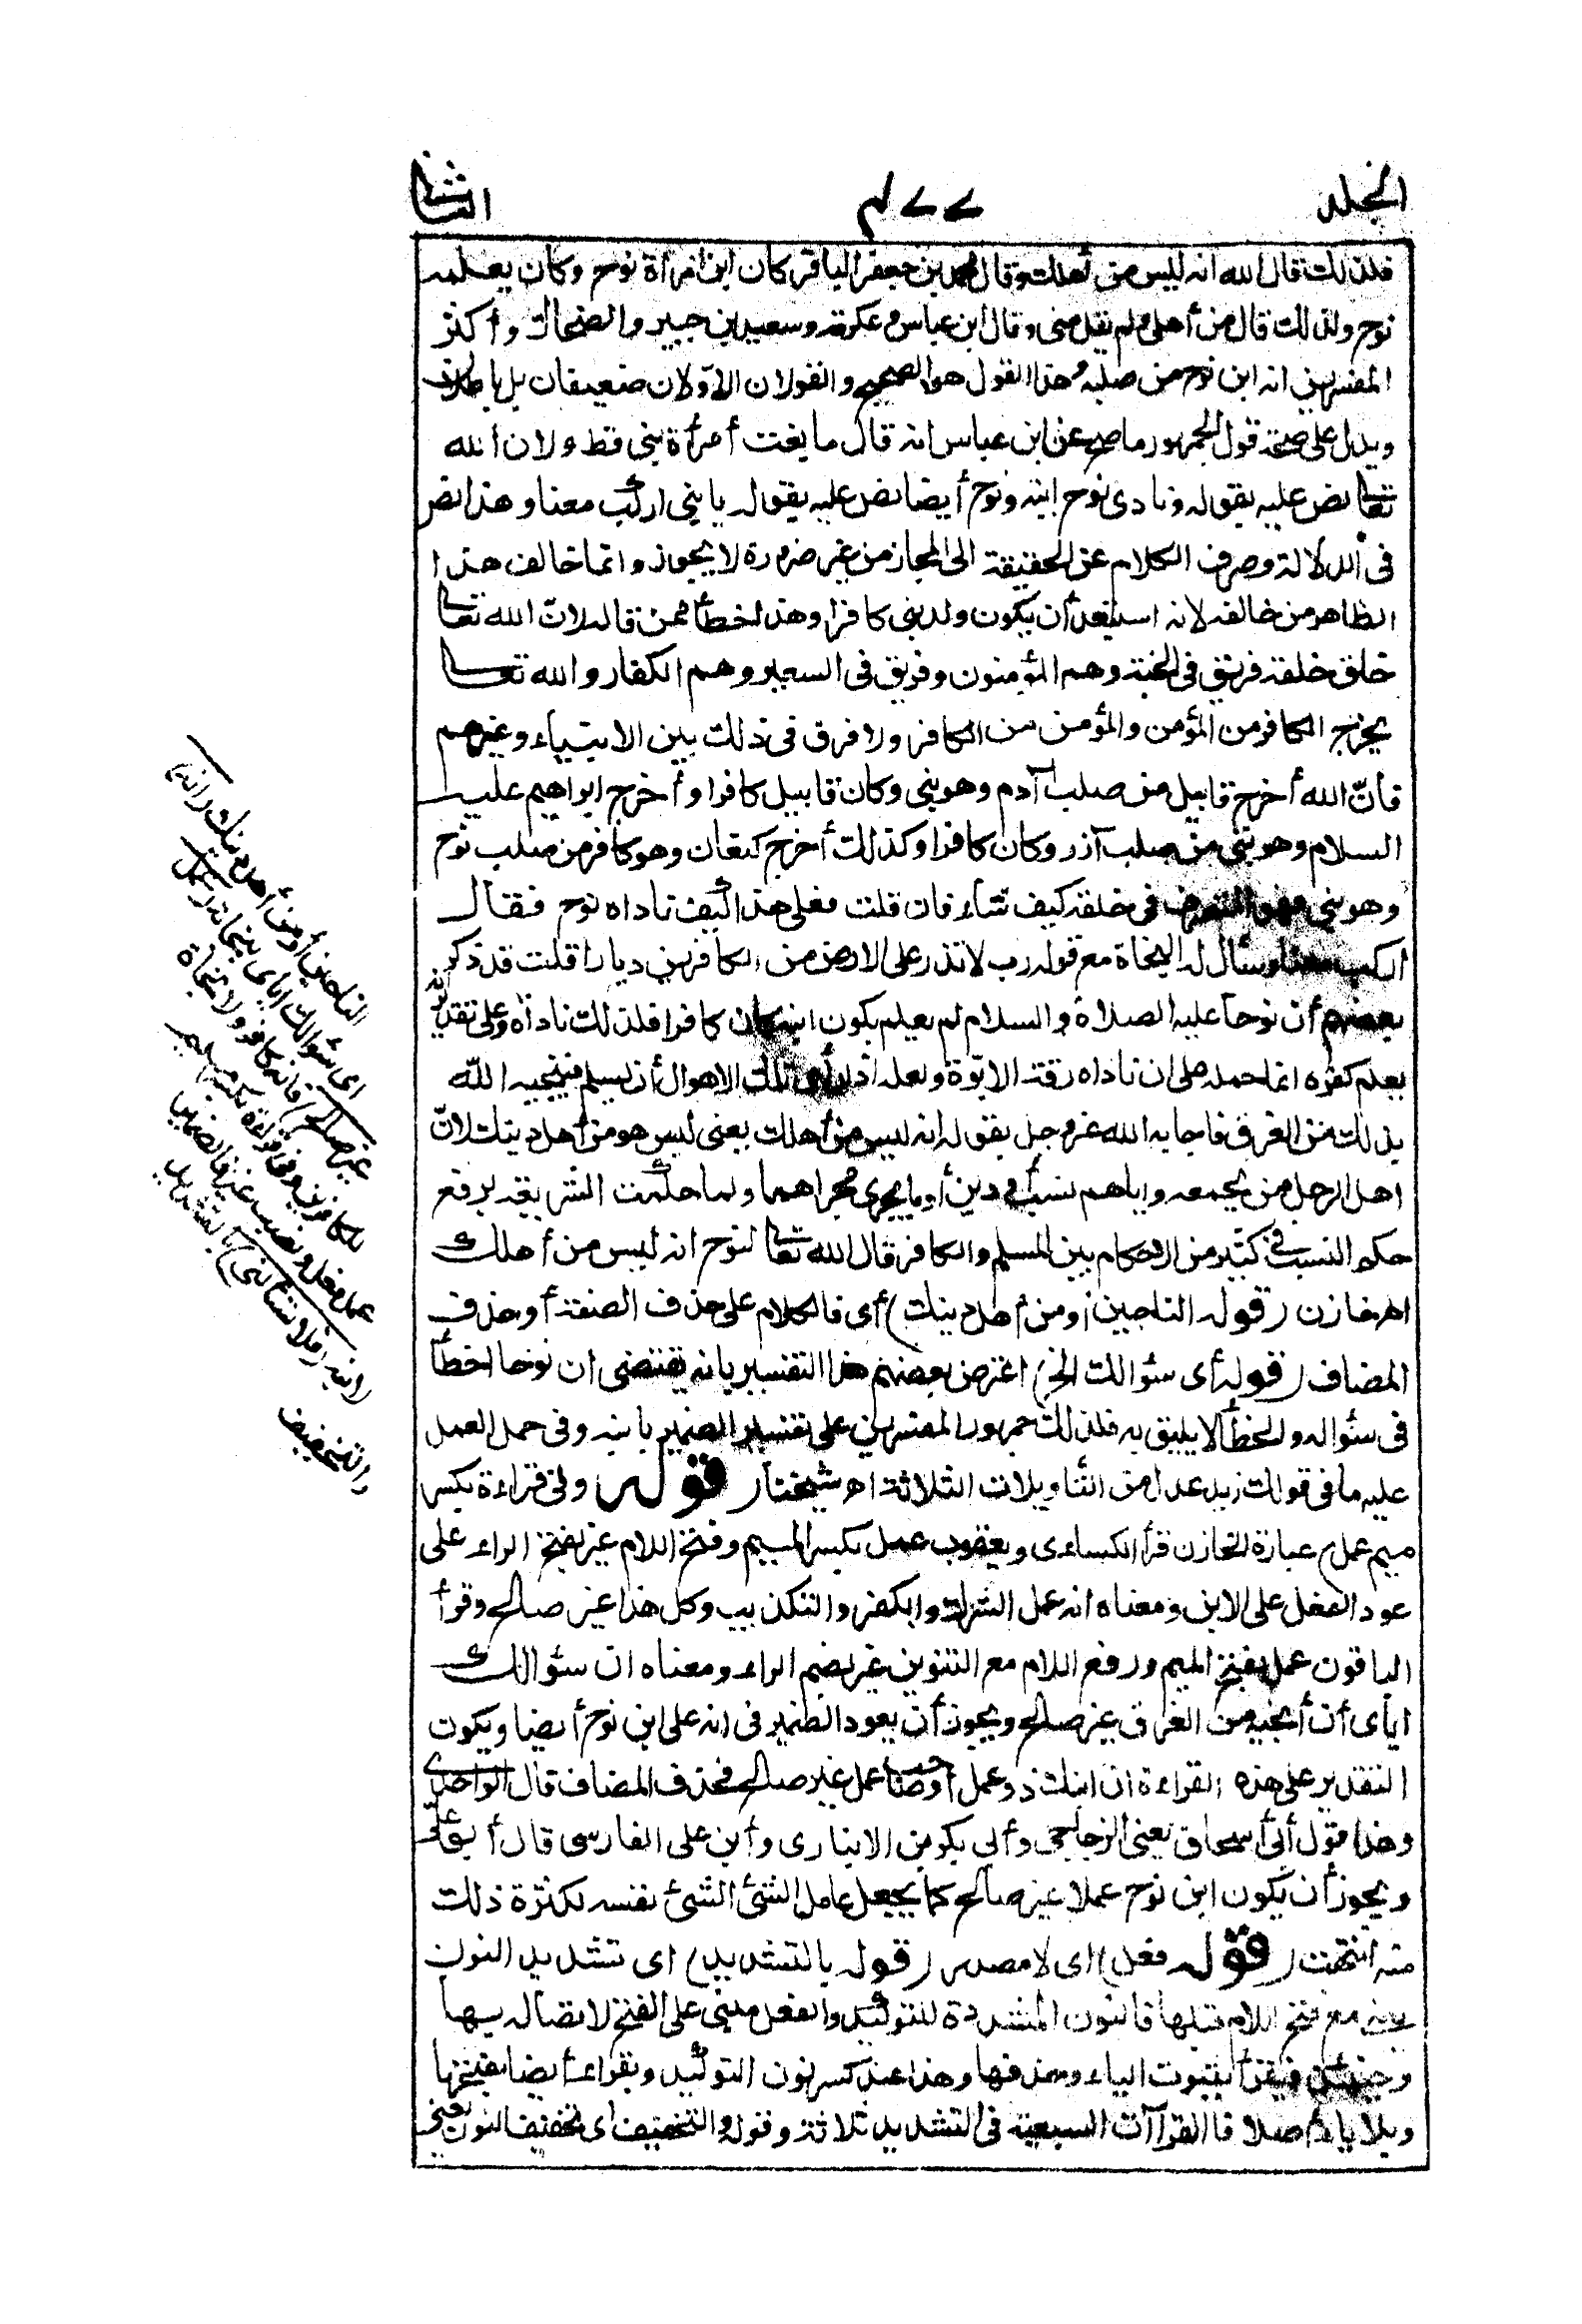 المجلد ٤٧٧ الثاني
فلذلك قال الله انه ليس من أهلك وقال محمد بن جعفر الباقر كان ابن امرأة نوح وكان يعلمه
نوح ولذلك قال من أهلي ولم يقل مني وقال ابن عباس وعكرمة وسعيد بن جبير والضحاك وأكثر
المفسرين انه ابن نوح من صلبه وهذا القول هو الصحيح والقولان الاولان ضعيفان بل باطلان
ويدل على صحة قول الجمهور ما صح عن ابن عباس انه قال ما بغت أمرأة نبي قط ولان الله
تعالى نص عليه بقوله ونادى نوح ابنه ونوح أيضا نص عليه بقوله يا بني اركب معنا وهذا نص
في الدلالة وصرف الكلام عن الحقيقة الى المجاز من غير ضرورة لا يجوز وانما خالف هذا
الظاهر من خالفه لانه استبعد أن يكون ولد نبي كافرا وهذا خطأ ممن قاله لانّ الله تعالى
خلق خلقه فريق في الجنة وهم المؤمنون وفريق في السعير وهم الكفار والله تعالى
يخرج الكافر من المؤمن والمؤمن من الكافر ولا فرق في ذلك بين الانبياء وغيرهم
فانّ الله أخرج قابيل من صلب آدم وهو نبي وكان قابيل كافرا وأخرج ابراهيم عليه
السلام وهو نبي من صلب آزر وكان كافرا وكذلك أخرج كنعان وهو كافر من صلب نوح
وهو نبي فهو المتصرف في خلقه كيف شاء فان قلت فعلى هذا كيف ناداه نوح فقال
اركب معنا وسأل له النجاة مع قوله رب لا تذر على الارض من الكافرين ديارا قلت قد ذكر
بعضهم أن نوحا عليه الصلاة والسلام لم يعلم بكون ابنه كان كافرا فلذلك ناداه وعلى تقدير أنه
يعلم كفره انما حمله على ان ناداه رقة الابوة ولعله اذا رأى تلك الاهوال أن يسلم فينجيه الله
بذلك من الغرق فاجابه الله عز وجل بقوله انه ليس من أهلك يعني ليس هو من أهل دينك لانّ
اهل الرجل من يجمعه واياهم نسب أو دين أو ما يجري مجراهما ولما حكمت الشريعة برفع
حكم النسب في كثير من الاحكام بين المسلم والكافر قال الله تعالى لنوح انه ليس من أهلك
اهـ خازن (قوله الناجين أو من أهل دينك) أي فالكلام على حذف الصفة أو حذف
المضاف (قوله أي سؤالك الخ) اعترض بعضهم هذا التفسير بانه يقتضي ان نوحا اخطأ
في سؤاله والخطأ لا يليق به فلذلك جمهور المفسرين على تفسير الضمير بابنه وفي حمل العمل
عليه ما في قولك زيد عدل من التأويلات الثلاثة اهـ شيخنا (قوله وفي قراءة بكسر
ميم عمل) عبارة الخازن قرأ الكساءى ويعقوب عمل بكسر الميم وفتح اللام غير بفتح الراء على
عود الفعل على الابن ومعناه انه عمل الشرك والكفر والتكذيب وكل هذا غير صالح وقرأ
الباقون عمل بفتح الميم ورفع اللام مع التنوين غير بضم الراء ومعناه ان سؤالك
اياى أن أنجيه من الغرق غير صالح ويجوز أن يعود الضمير في انه على ابن نوح أيضا ويكون
التقدير على هذه القراءة ان ابنك ذو عمل أو صاحب عمل غير صالح فحذف المضاف قال الواحدي
وهذا قول أبي اسحاق يعني الزجاج وأبي بكر بن الانباري وأبي على الفارسي قال أبو علي
ويجوز أن يكون ابن نوح عملا غير صالح كما يجعل عامل الشئ الشئ نفسه لكثرة ذلك
منه انتهت (قوله فعل) اى لا مصدر (قوله بالتشديد) اى تشديد النون
يعني مع فتح اللام قبلها فالنون المشددة للتوكيد والفعل مبني على الفتح لاتصاله بها
وحينئذ فيقرأ بثبوت الياء وحذفها وهذا عند كسر نون التوكيد ويقرأ أيضا بفتحها
وبلا ياء أصلا فالقراآت السبعية في التشديد ثلاثة وقوله والتخفيف اى تخفيف النون يعني
الناجين أو من أهل دينك (انه)
اى سؤالك اياى بنجاته (عمل
غير صالح) فانه كافر ولا نجاة
للكافرين وفي قراءة بكسر ميم
عمل فعل ونصب غير فالضمير
لابنه (فلا تسألني) بالتشديد
والتخفيف